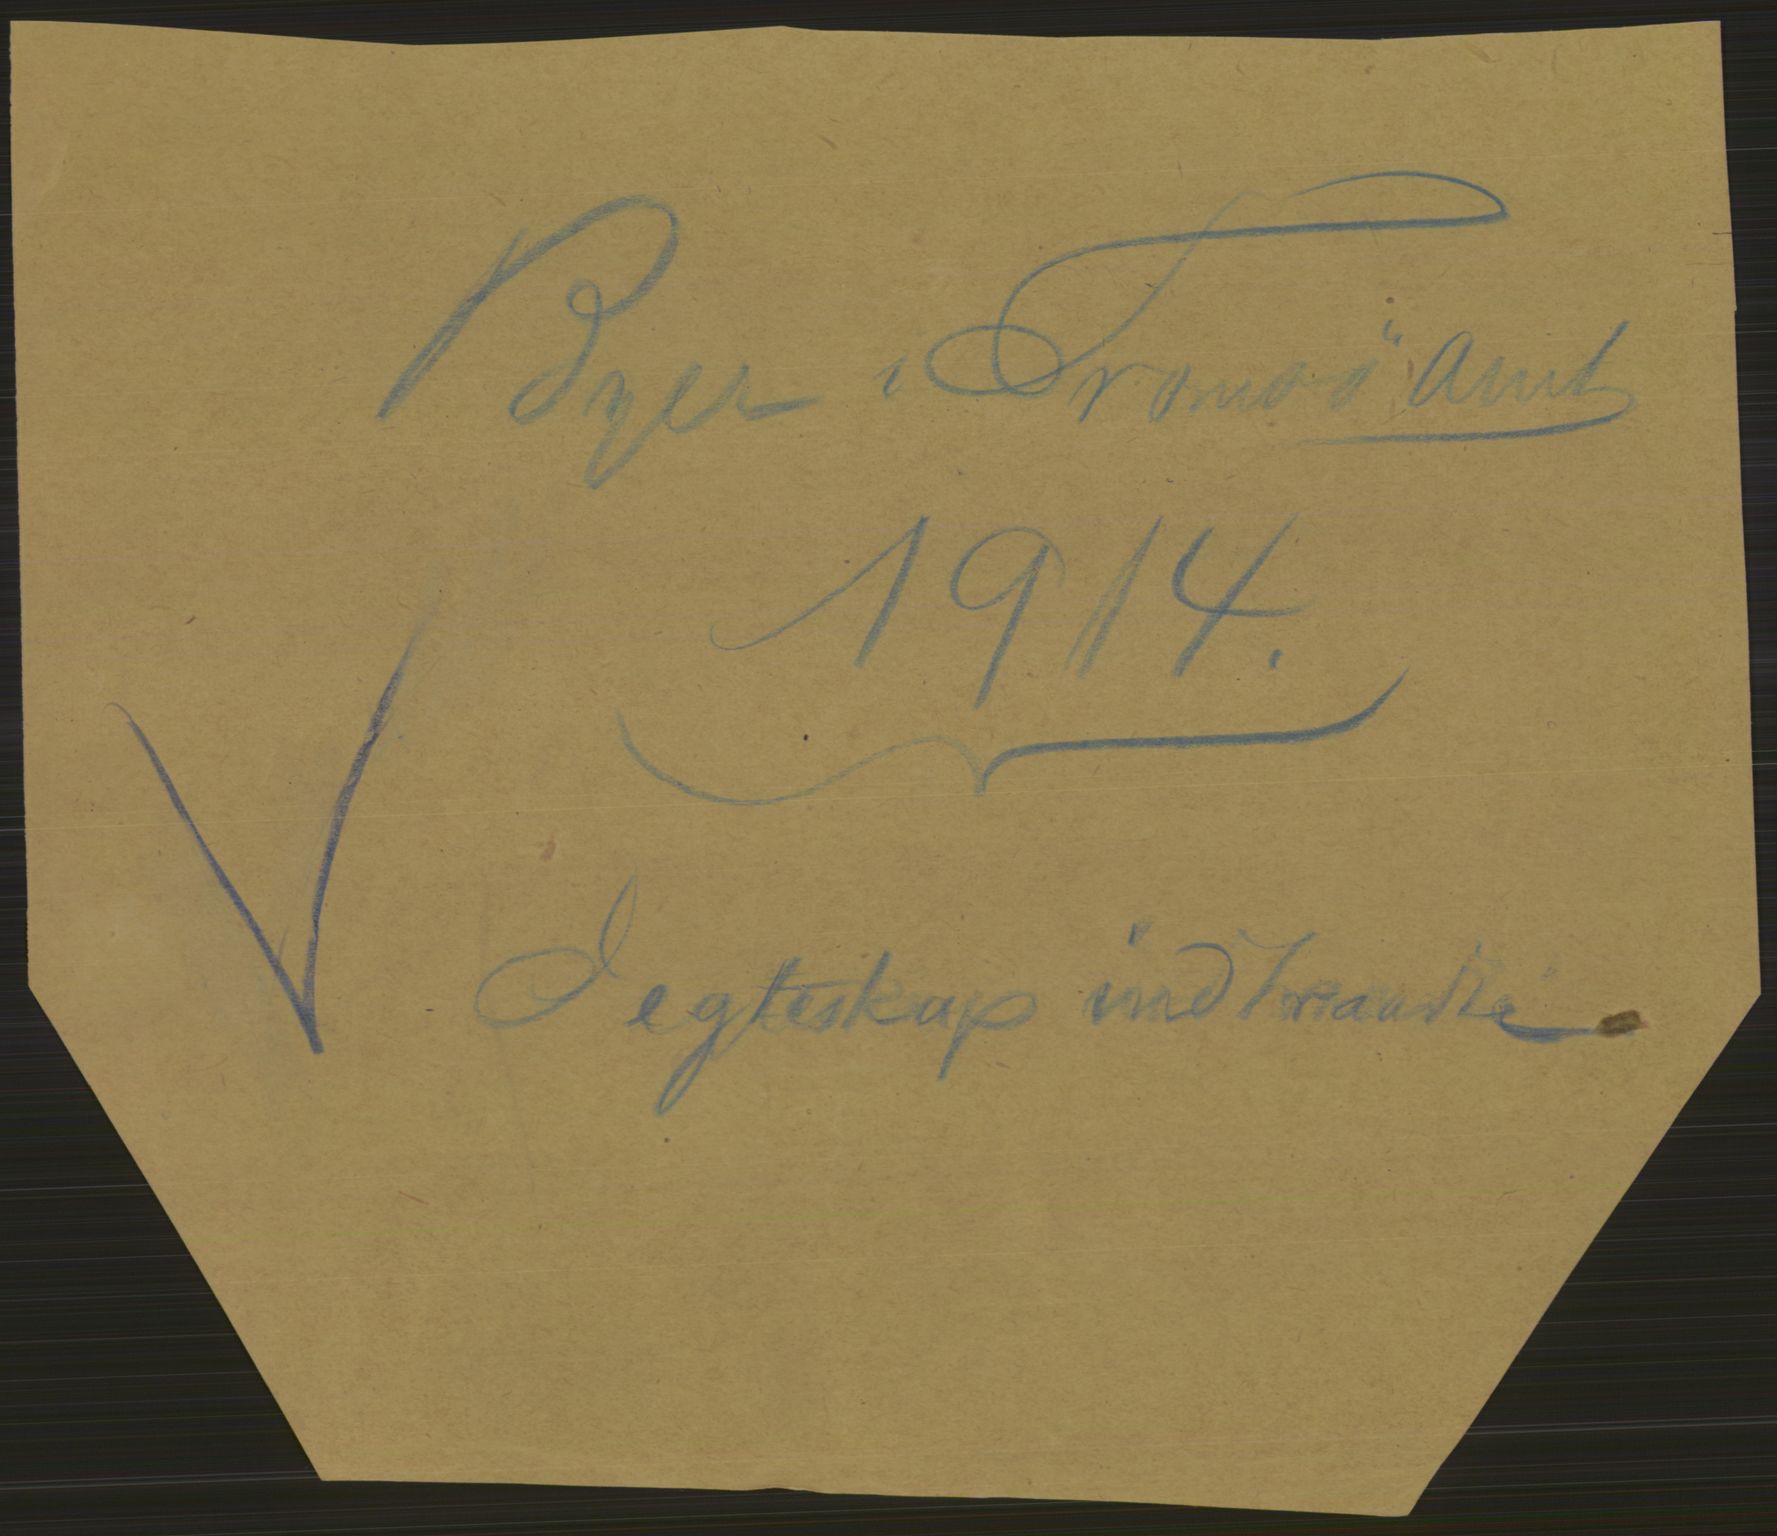 Byer i Tromsö Amt
1914.
I egteskap indtraadte